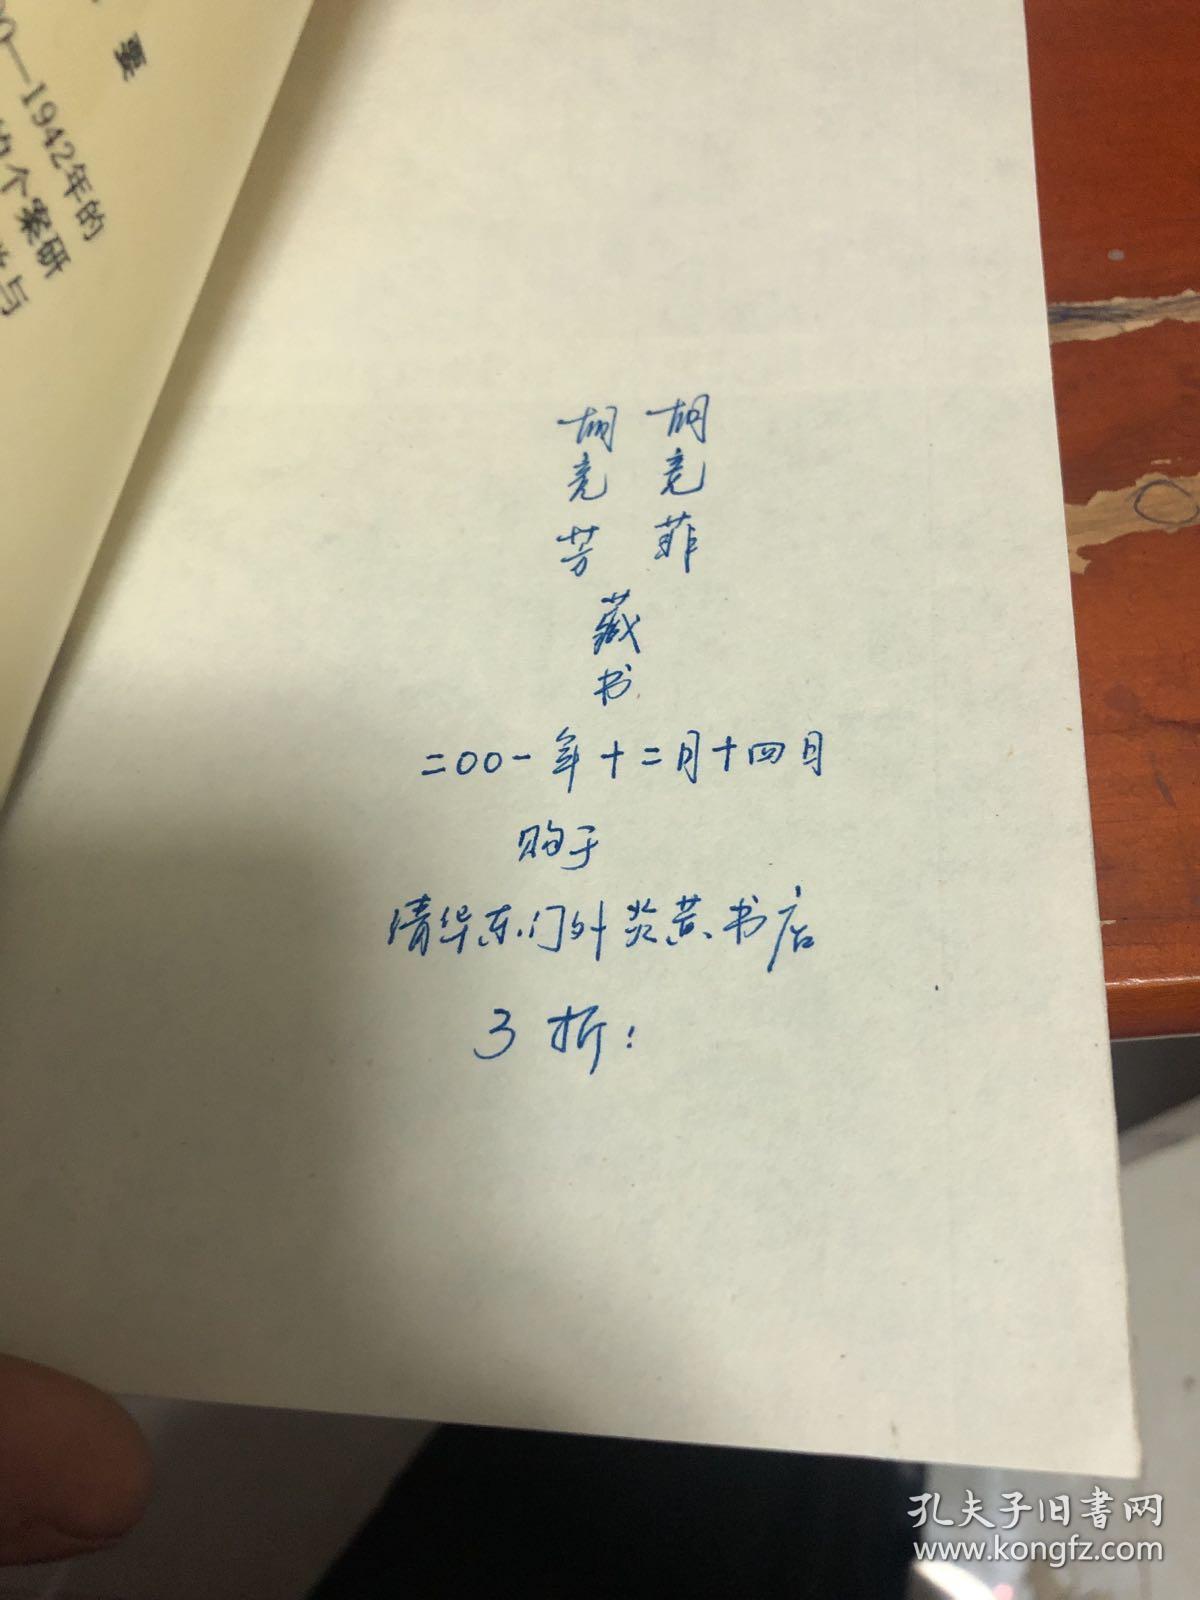 要
0—1942年的
个案研
与
胡竞菲
胡竞芳
藏书
二〇〇一年十二月十四日
购于
清华东门外炎黄书店
3折：
孔夫子旧書网
www.kongfz.com